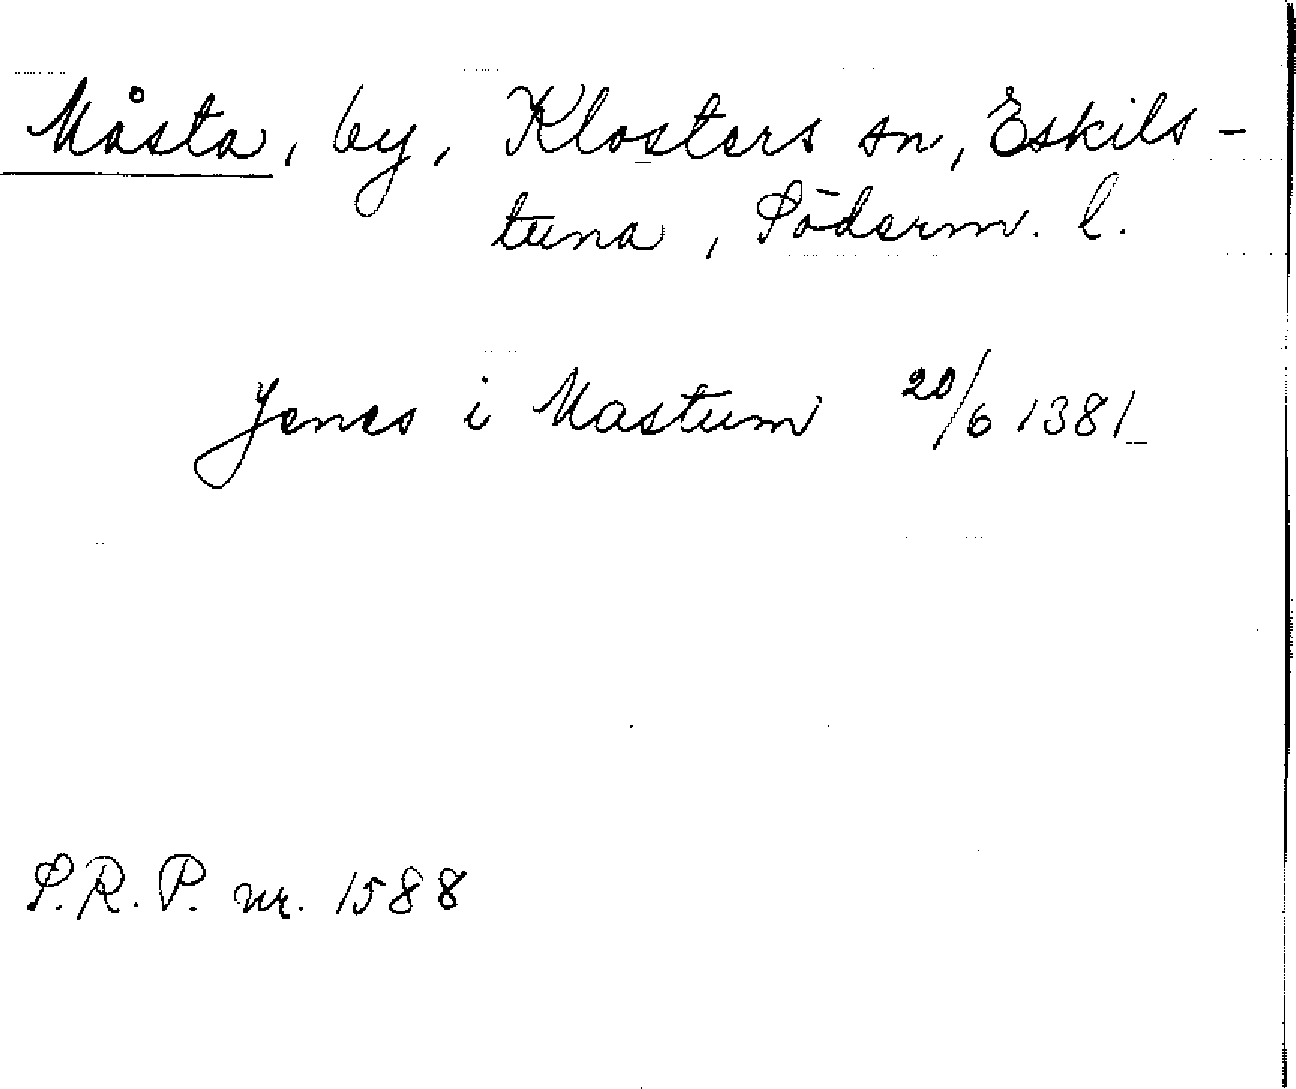 Måsta, by, Klosters sn, Eskils-
tuna, Söderm. l.
Jenes i Mastum 20/6 1381
S.R.P. nr. 1588